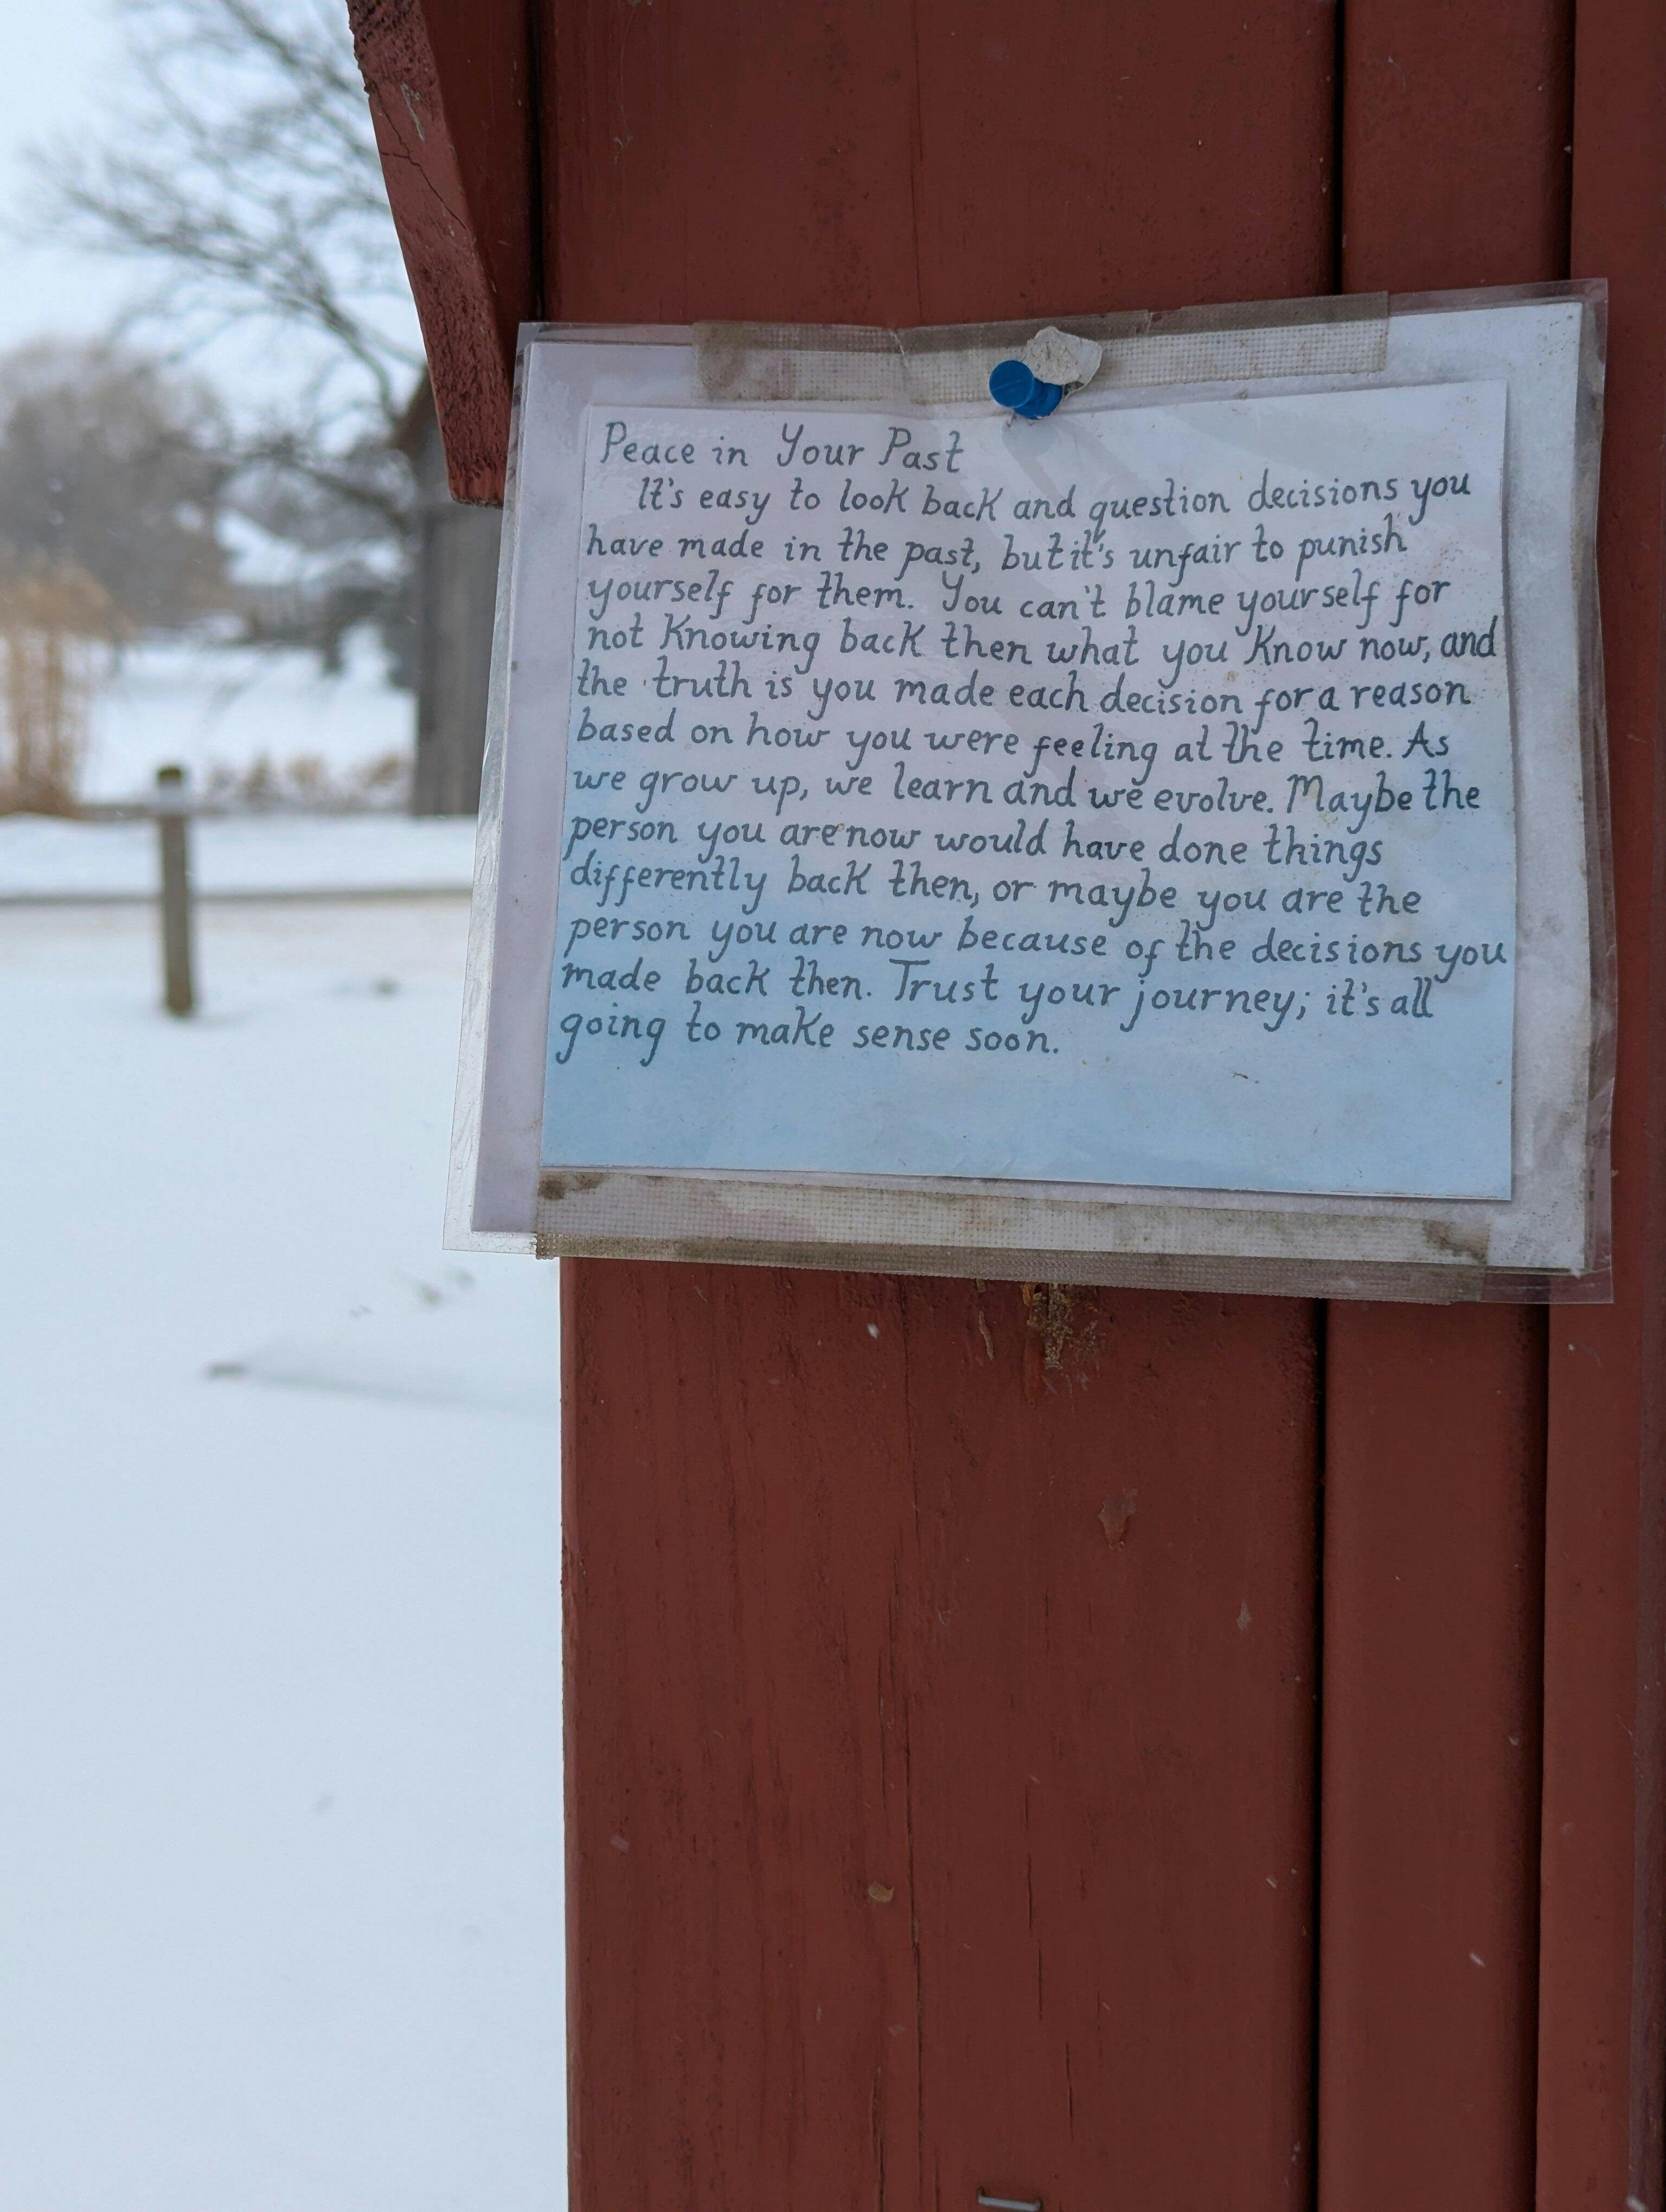 Peace in Your Past
It's easy to look back and question decisions you
have made in the past, but it's unfair to punish
yourself for them. You can't blame yourself for
not Knowing back then what you Know now, and
the truth is you made each decision for a reason
based on how you were feeling at the time. As
we grow up, we learn and we evolve. Maybe the
person you are now would have done things
differently back then, or maybe you are the
person you are now because of the decisions you
made back then. Trust your journey; it's all
going to make sense soon.